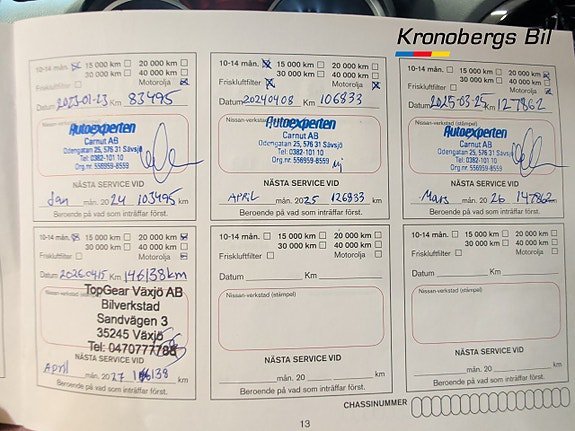 Kronobergs Bil
10-14 mån. 15 000 km 20 000 km
30 000 km 40 000 km
Friskluftfilter Motorolja
Datum 2023-01-23 Km 83495
Nissan-verkstad (stämpel)
Autoexperten
Carnut AB
Odengatan 25, 576 31 Sävsjö
Tel: 0382-101 10
Org.nr. 556959-8559
NÄSTA SERVICE VID
Jan mån. 20 24 103495 km
Beroende på vad som inträffar först.
10-14 mån. 15 000 km 20 000 km
30 000 km 40 000 km
Friskluftfilter Motorolja
Datum 20240408 Km 106833
Nissan-verkstad (stämpel)
Autoexperten
Carnut AB
Odengatan 25, 576 31 Sävsjö
Tel: 0382-101 10
Org.nr. 556959-8559
NÄSTA SERVICE VID
APRIL mån. 20 25 126833 km
Beroende på vad som inträffar först.
10-14 mån. 15 000 km 20 000 km
30 000 km 40 000 km
Friskluftfilter Motorolja
Datum 2025-03-25 Km 127862
Nissan-verkstad (stämpel)
Autoexperten
Carnut AB
Odengatan 25, 576 31 Sävsjö
Tel: 0382-101 10
Org.nr. 556959-8559
NÄSTA SERVICE VID
Mars mån. 20 26 147862 km
Beroende på vad som inträffar först.
10-14 mån. 15 000 km 20 000 km
30 000 km 40 000 km
Friskluftfilter Motorolja
Datum 20260415 Km 146138km
Nissan-verkstad (stämpel)
TopGear Växjö AB
Bilverkstad
Sandvägen 3
35245 Växjö
Tel: 0470777788
NÄSTA SERVICE VID
April mån. 20 27 km
Beroende på vad som inträffar först.
10-14 mån. 15 000 km 20 000 km
30 000 km 40 000 km
Friskluftfilter Motorolja
Datum Km
Nissan-verkstad (stämpel)
NÄSTA SERVICE VID
mån. 20 km
Beroende på vad som inträffar först.
10-14 mån. 15 000 km 20 000 km
30 000 km 40 000 km
Friskluftfilter Motorolja
Datum Km
Nissan-verkstad (stämpel)
NÄSTA SERVICE VID
mån. 20 km
Beroende på vad som inträffar först.
CHASSINUMMER
13